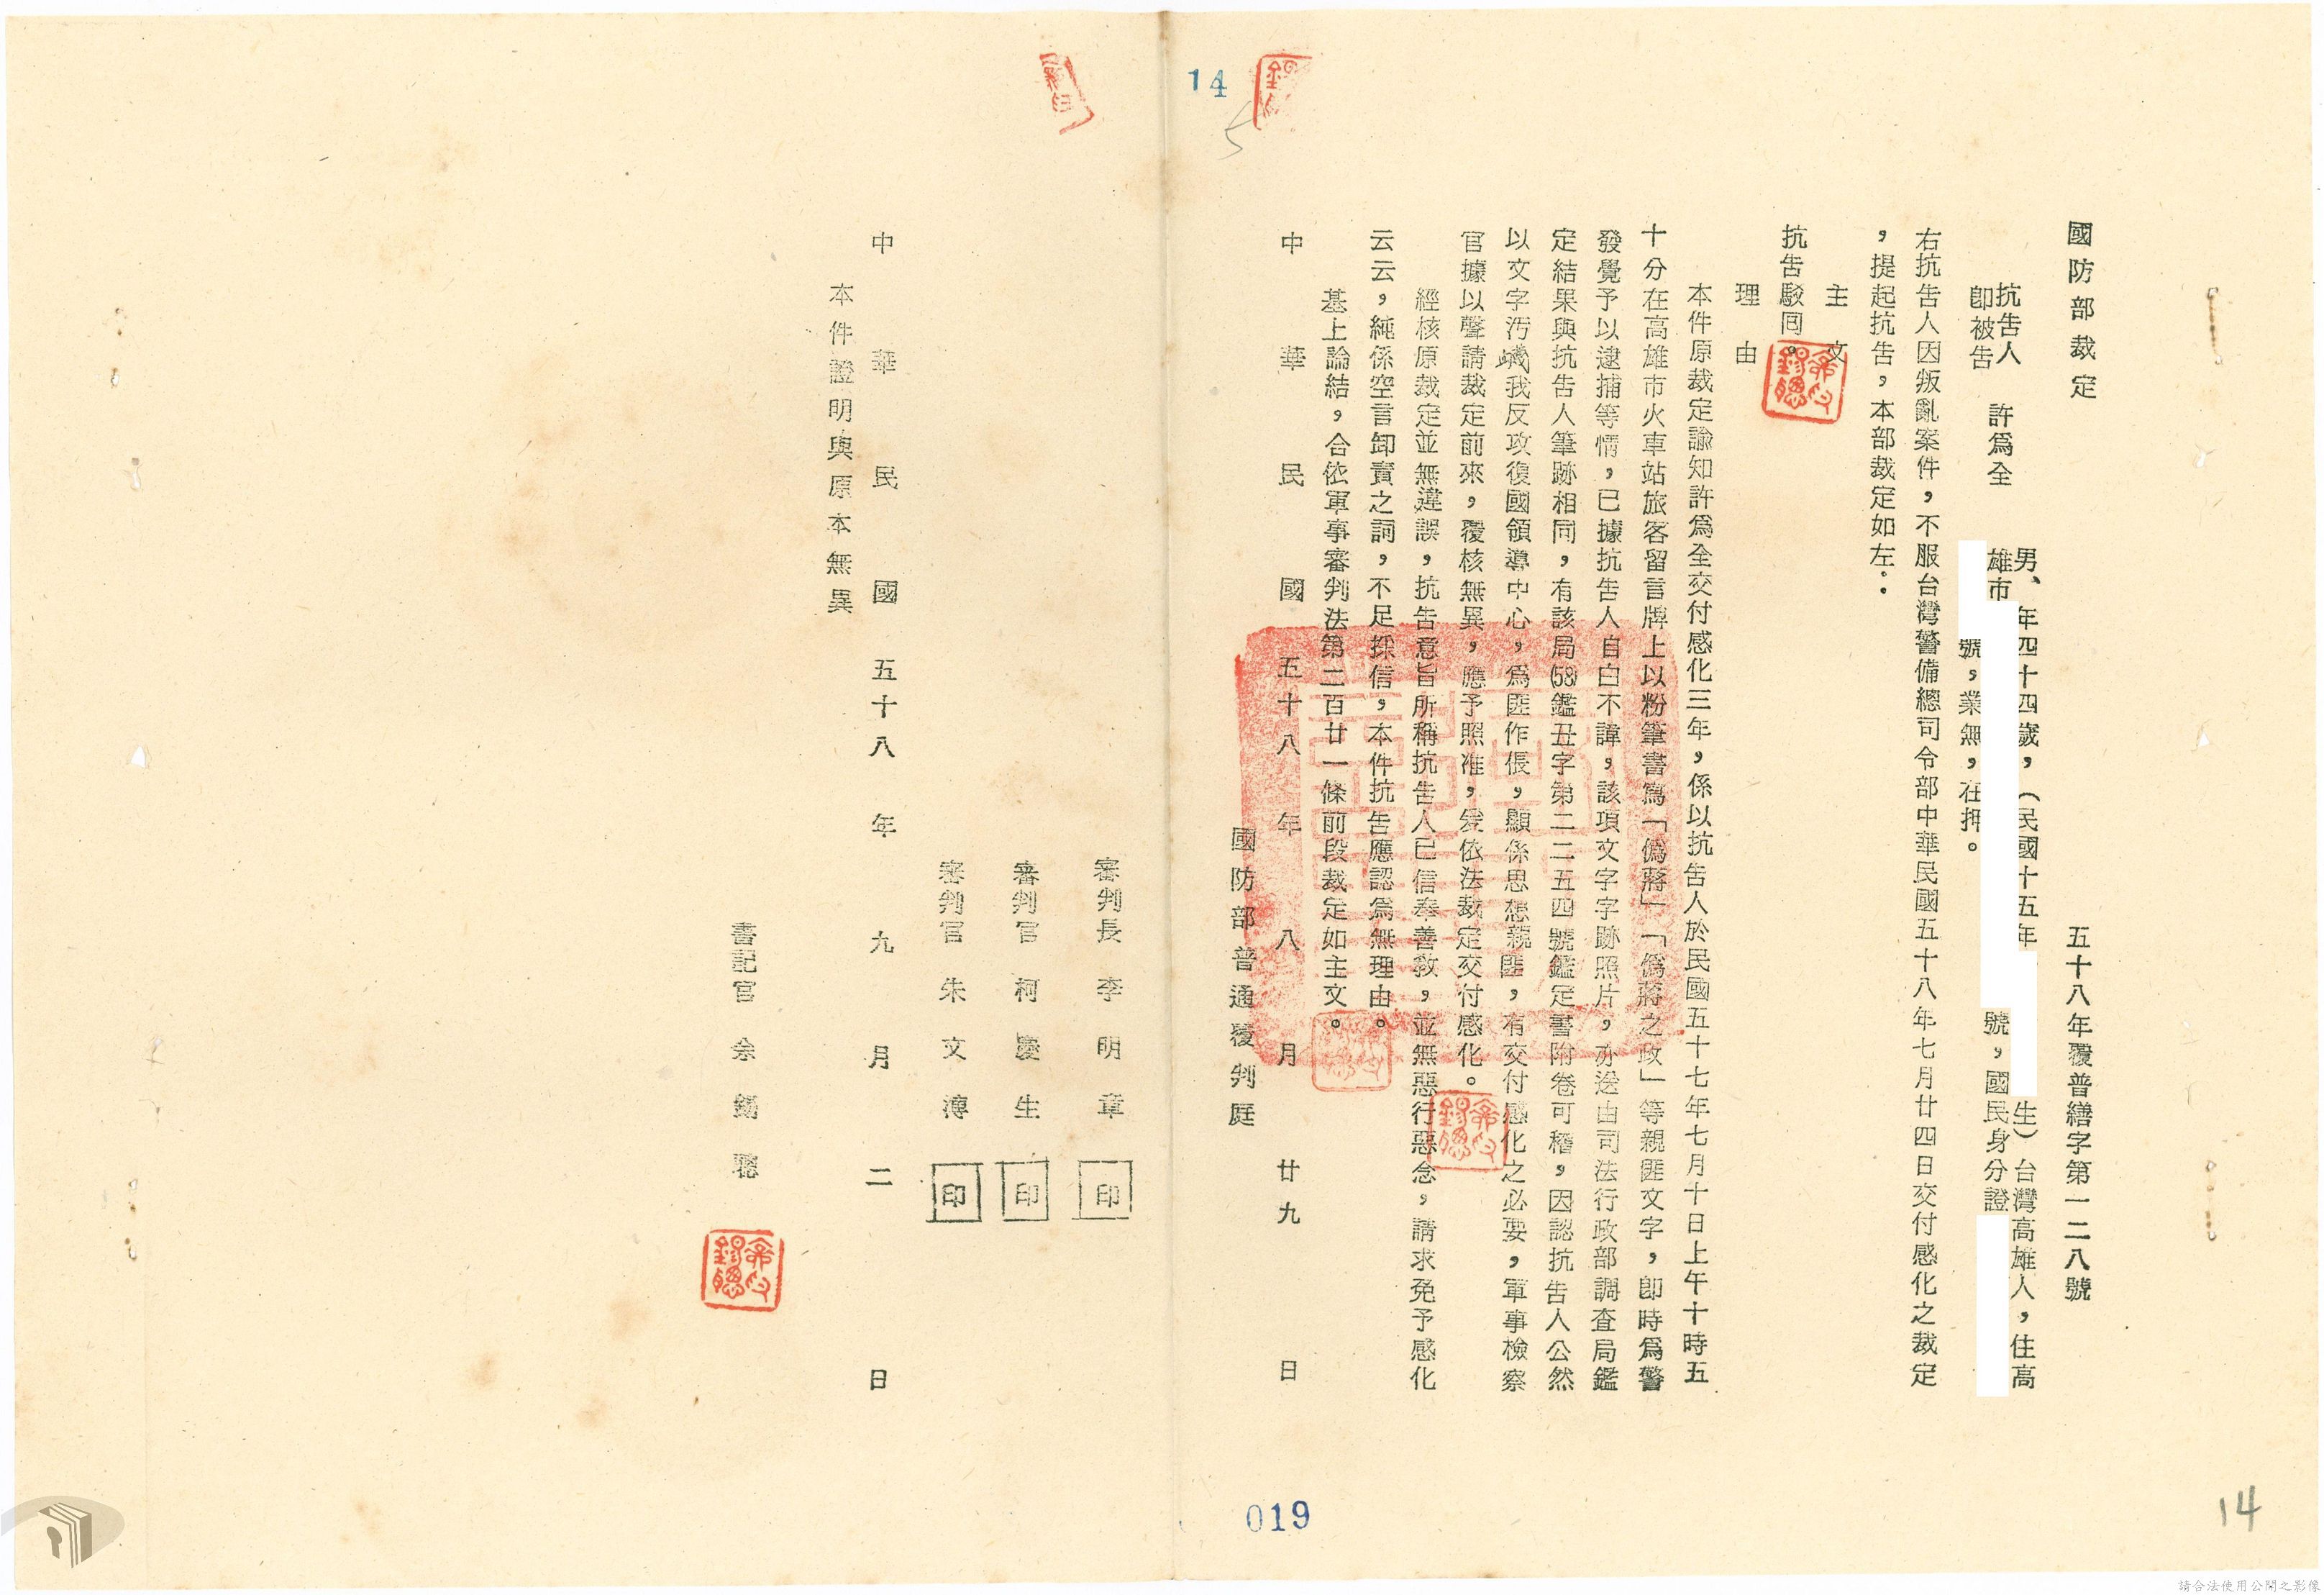 國防部裁定
五十八年覆普繕字第一二八號
抗告人
即被告
許為全
男、年四十四歲，（民國十五年
生）台灣高雄人，住高
雄市
號，國民身分證
號，業無，在押。
右抗告人因叛亂案件，不服台灣警備總司令部中華民國五十八年七月廿四日交付感化之裁定
，提起抗告，本部裁定如左：
主文
抗告駁回。
理由
本件原裁定諭知許為全交付感化三年，係以抗告人於民國五十七年七月十日上午十時五
十分在高雄市火車站旅客留言牌上以粉筆書寫「偽蔣」「偽蔣之政」等親匪文字，即時為警
發覺予以逮捕等情，已據抗告人自白不諱，該項文字字跡照片，亦送由司法行政部調查局鑑
定結果與抗告人筆跡相同，有該局(58)鑑丑字第二二五四號鑑定書附卷可稽，因認抗告人公然
以文字汚衊我反攻復國領導中心，為匪作倀，顯係思想親匪，有交付感化之必要，軍事檢察
官據以聲請裁定前來，覆核無異，應予照准，爰依法裁定交付感化。
經核原裁定並無違誤，抗告意旨所稱抗告人已信奉善教，並無惡行惡念，請求免予感化
云云，純係空言卸責之詞，不足採信，本件抗告應認為無理由。
基上論結，合依軍事審判法第二百廿一條前段裁定如主文。
中華民國五十八年八月廿九日
國防部普通覆判庭
審判長 李明章 印
審判官 柯慶生 印
審判官 朱文溥 印
中華民國五十八年九月二日
本件證明與原本無異
書記官 余錫聰
14
5
019
14
請合法使用公開之影像